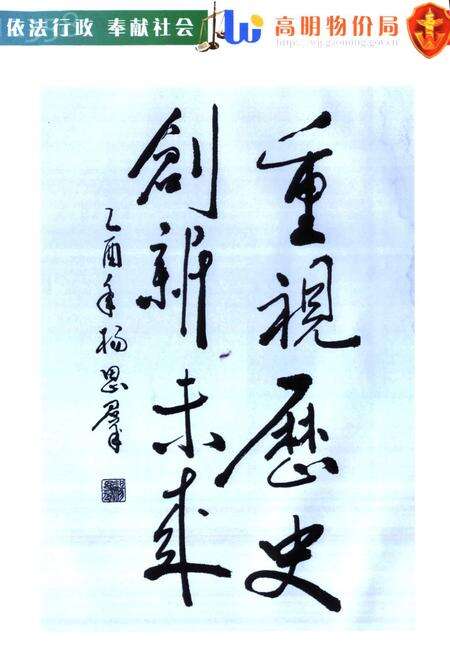 依法行政 奉献社会
高明物价局
http://wjj.gaoming.gov.cn
重視歷史
創新未來
乙酉年杨思羣